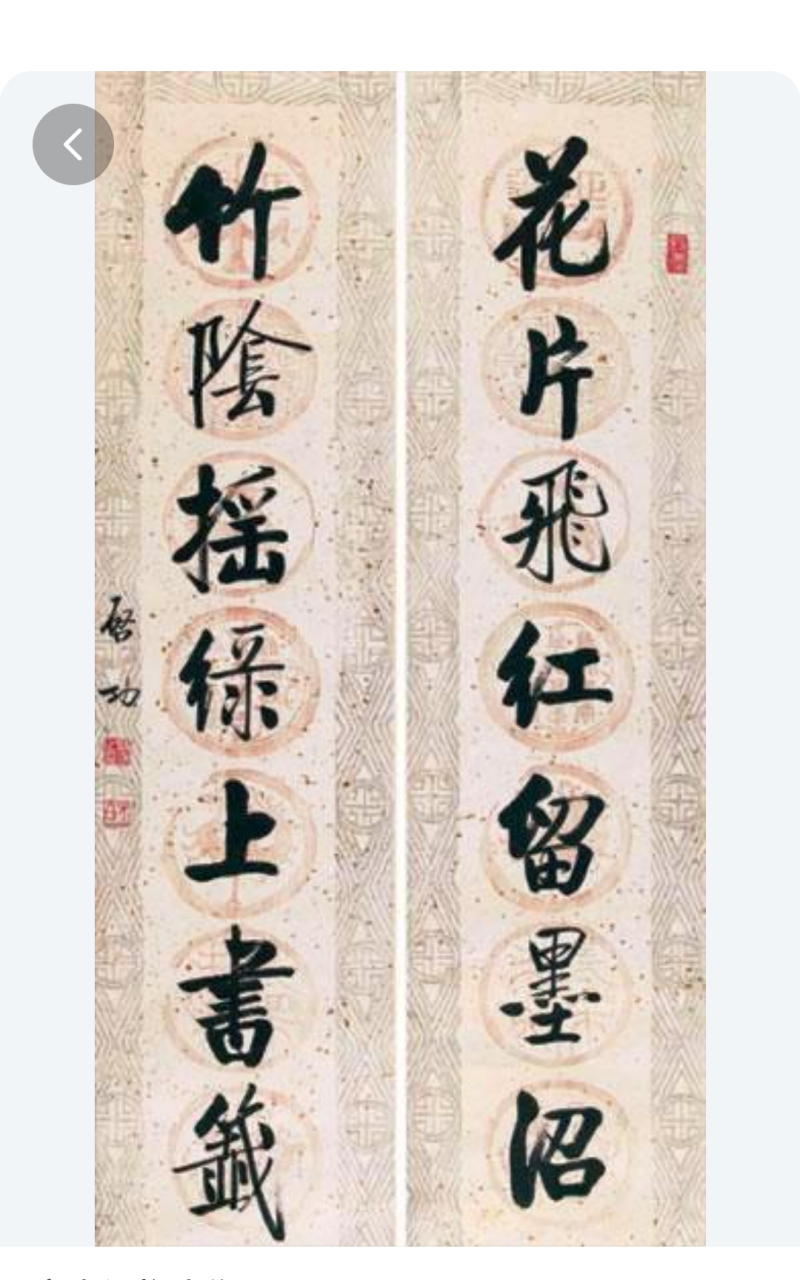 花片飛红留墨沼
竹陰摇緑上書籤
啓功